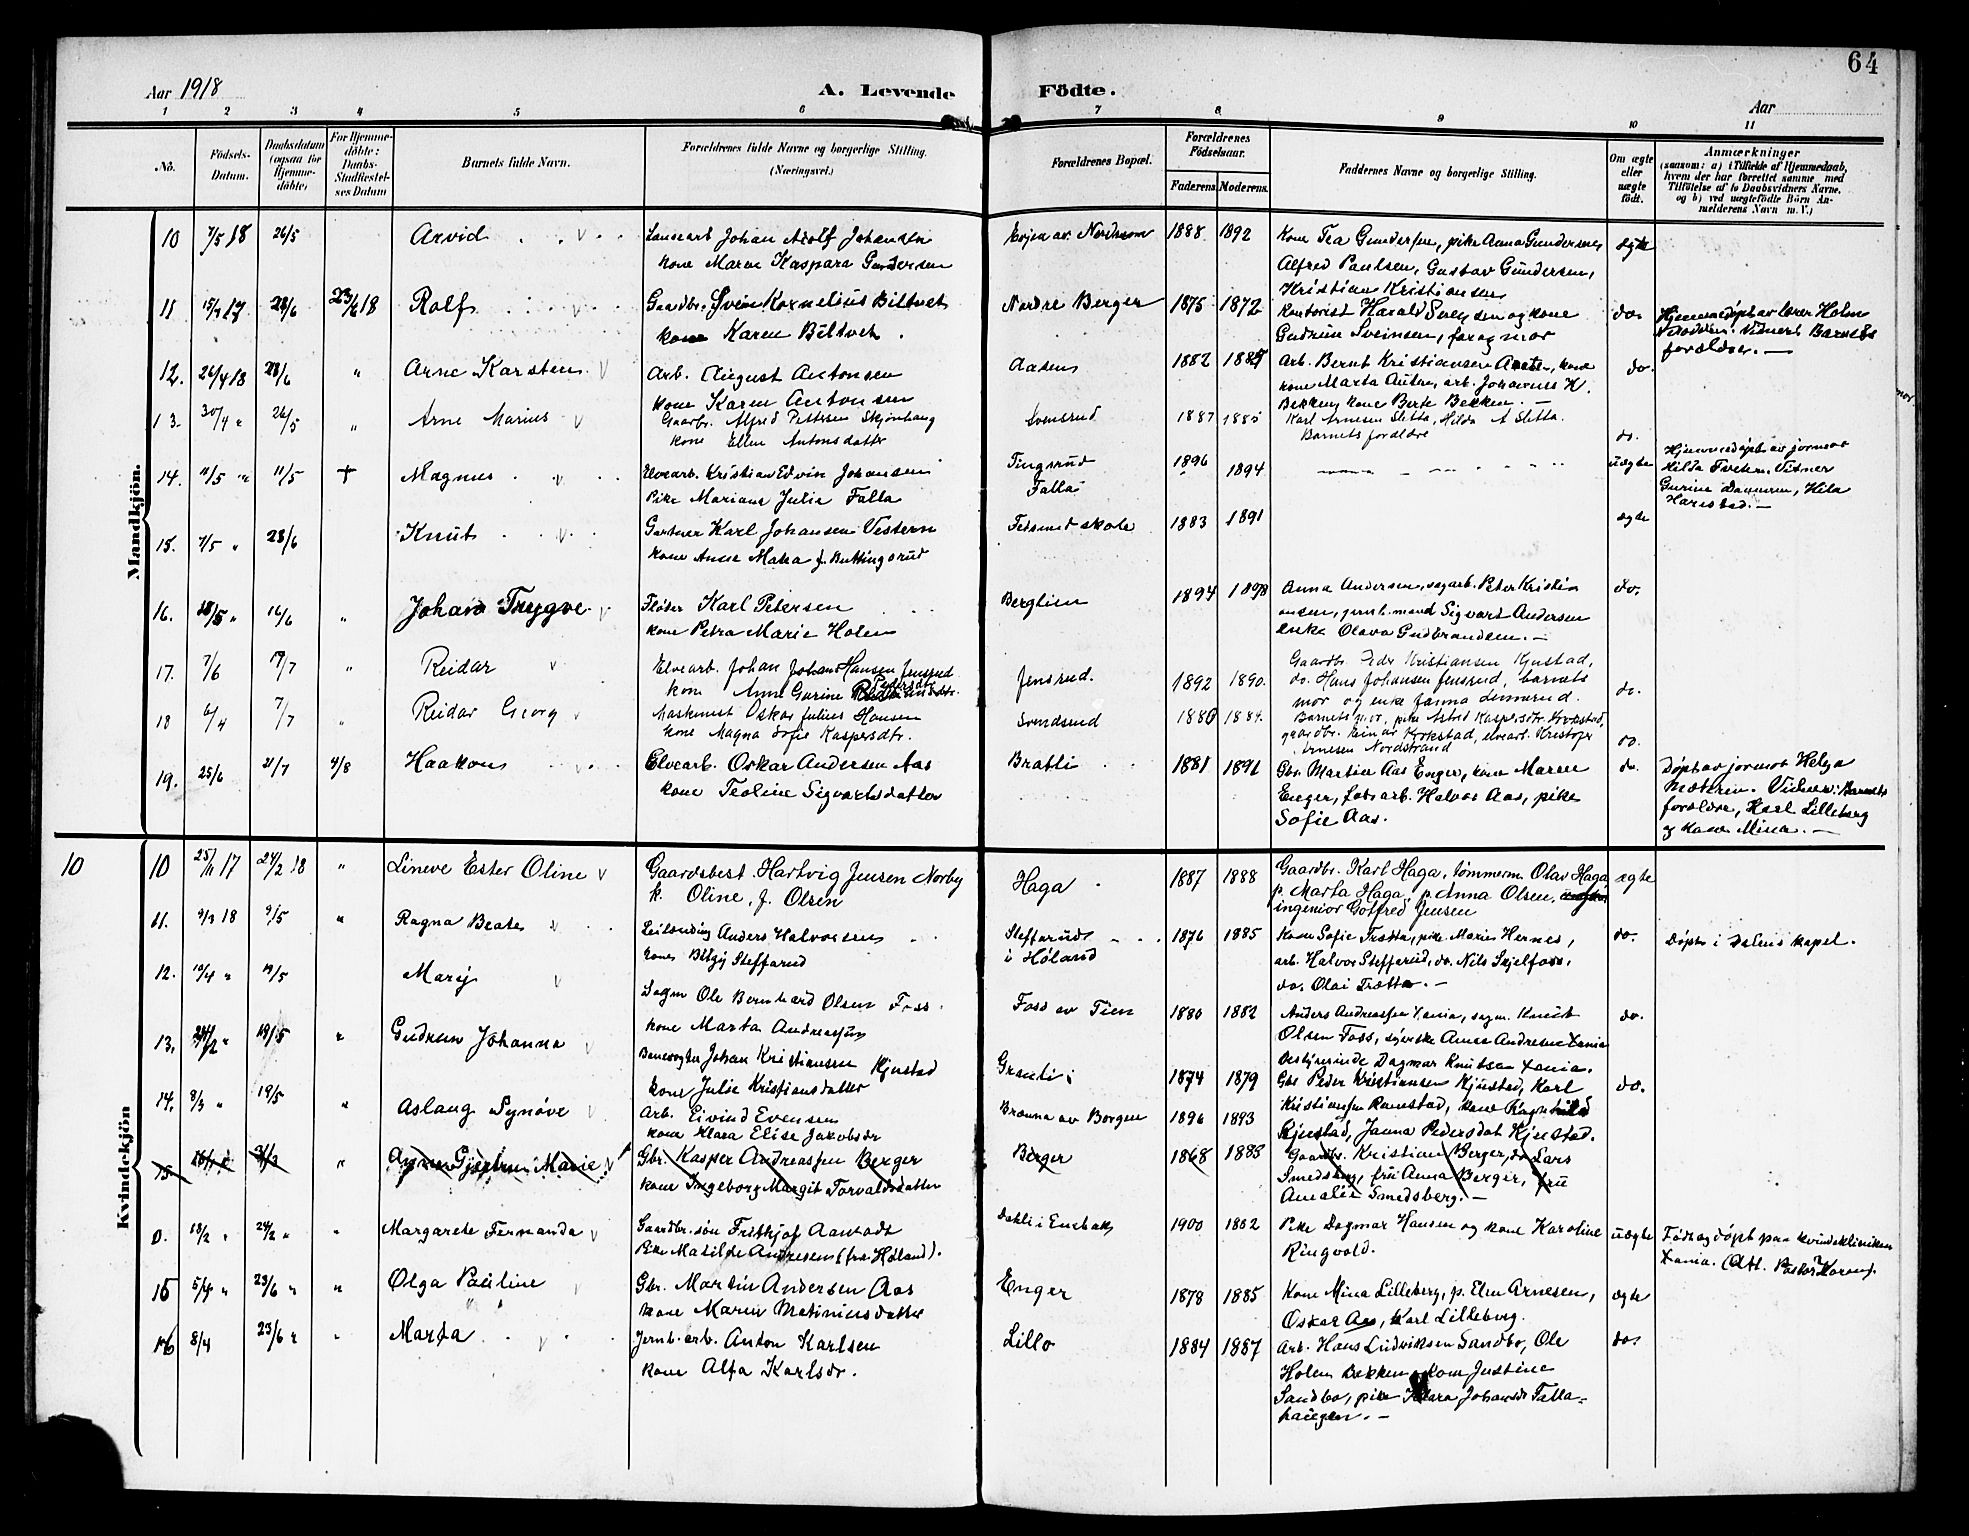 64
Aar 1918
A. Levende
Födte.
Aar
1 2 3 4 5 6 7 8 9 10 11
No.
Födsels-Datum.
Daabsdatum (ogsaa for Hjemme-döbte)
For Hjemme-döbte: Daabs-Stadfæstel-ses Datum
Barnets fulde Navn.
Forældrenes fulde Navne og borgerlige Stilling.
(Næringsvei.)
Forældrenes Bopæl.
Forældrenes Födselsaar.
Faderens. Moderens.
Faddernes Navne og borgerlige Stilling.
Om ægte eller uægte födt.
Anmærkninger
(saasom: a) i Tilfælde af Hjemmedaab,
hvem der har forrettet samme med
Tilföielse af to Daabsvidners Navne.
og b) ved uægtefödte Börn An-
melderens Navn m. V.)
Mandkjön.
10 7/5 18 26/5 Arvid Johan Adolf Johansen 1888 1892 Kone Tea Gundersen, pike Anna Gundersen ægte
kone Maren Kaspara Gundersen
Alfred Paulsen, Gustav Gundersen,
Kristian Kristiansen
11 28/6 23/6 18 Rolf Gaardbr. Svein Kornelius Biltvet Nordre Berger 1875 1872 Kontorist Harald Svendsen og kone do. Hjemmedøpt av lærer Holm
kone Karen Biltvet.
Gudrun Sveinsen, far og mor
Vidner: Barnets
forældre. —
12. 26/4 18 23/6 " Arne Karsten Arb. August Antonsen Aasen 1882 Arb. Bernt Kristiansen do.
kone Karen Antonsen
kone Marta Autn, arb. Johannes H.
Bekken, kone Berte Bekken. —
13. 30/4 " 26/5 " Arne Marius Gaardbr. Alfred Pettersen Skjønhaug Svensrud 1887 1885 Karl Arnesen Sletta, Hilda A Sletta. do.
kone Ellen Antonsdatter
Barnets forældre
14. 11/5 " 11/5 + Magnus Elvearb. Kristian Edvin Johansen Tingsrud 1896 1894 uægte Hjemmedøpt av jormor
Pike Mariane Julie Falla Falla
Hilda Vidner
Gurine
Harestad. —
15. 7/5 " 23/6 Knut Gartner Karl Johansen Vestern Fetsund skole 1883 1891 ægte
kone Anna f. Buttingsrud
16. 28/5 " 16/6 " Johan Trygve Fløter Karl Petersen Berglien 1894 1898 Anna Andersen, sagarb. Peter Kristi do.
kone Petra Marie Holen
ansen, jernb.mand Sigvart Andersen
enke Olava Gudbrandsen. —
17. 7/6 " Reidar Elvearb. Johan Hansen Jensrud Jensrud. 1892 1890. Gaardbr. Peder Kristiansen Kjustad, do.
kone Anne Gurine Pedersdtr.
do. Hans Johansen Jensrud, barnets
mor og enke
18 7/7 " Reidar Georg Maskinist Oskar Julius Hansen Svendsrud 1880 1884. Barnets mor, pike Astrid Kaspersdtr. do.
kone Magna Sofie Kaspersdtr.
gaardbr. Einar Kirkstad, elvearb. Kristofer
Arnesen Nordstrand
19. 25/6 21/7 4/8 Haakon Elvearb. Oskar Andersen Aas Bratli 1881 1891 Gbr. Martin Aas Enger, kone Maren do. Døpt av jormor Helga
kone Teoline Sigvartsdatter
Enger, fabr. arb. Halvor Aas, pike
Vidner: Barnets
Sofie Aas.
forældre, Karl Lilleberg
og kone Mina. —
Kvindekjön
10
10 25/11 17 24/2 18 " Lineve Ester Oline Gaardsbest. Hartvig Jensen Norby Haga 1887 1888 Gaardbr. Karl Haga, tømmerm. Olav Haga ægte
k. Oline, f. Olsen
p. Marta Haga, p. Anna Olsen,
ingeniør Gotfred Jensen
11. 9/3 18 9/5 " Ragna Beate Leilending Anders Halvorsen Stefferud 1876 1885 Kone Sofie Trætta, pike Marie Hernes, do. Døpt i Dalens kapel.
kone Stefferud i Høland
arb. Halvor Stefferud, do. Nils Skjelfoss,
do. Olai Trætta. —
12. 10/4 " 19/5 Mary Sagm Ole Bernhard Olsen Foss Foss av Tien 1880 1882 Anders Andreassen Xania, sagm. Knut do.
kone Marta Andreassen
Olsen Foss, syerske Anna Andresen Xania
Bestyrerinde Dagmar Knutsen Xania.
13. 19/5 " Gudrun Johanna Banevogter Johan Kristiansen Kjustad Granli 1874 1879 Gbr Peder Kristiansen Kjustad, Karl do.
kone Julie Kristiansdatter
Kristiansen Ramstad, kone Ragnhild
Kjustad, Janna Pedersdat Kjustad.
14. 8/3 " 19/5 " Aslaug Synöve Arb. Eivind Evensen Braana av Borgen 1896 1893
kone Klara Elise Jakobsdr
15 " Anne Gjertrun Marie Gbr. Kasper Andreassen Berger Berger 1868 1883 Gaardbr. Kristian Berger, do Lars
kone Ingeborg Margit Torvaldsdatter
Smedsberg, frü Anna Berger, frü
Amalie Smedsberg. —
0. 13/2 " 24/2 " " Margarete Fernanda Gaardbr.søn Fritkjof Aamodt Dahl i Enebak 1900 Pike Dagmar Hansen og kone Karoline uægte Född og døpt paa kvindekliniken
Pike Matilde Andresen (fra Høland).
Ringvold.
Xania. (Att. Pastor
15 5/4 " 23/6 " " Olga Pauline Gbr. Martin Andersen Aas Enger 1878 1885 Kone Mina Lilleberg, p. Elen Arnesen, ægte
kone Maren Matiniusdatter
Oskar Aas, Karl Lilleberg.
16 8/4 23/6 " Marta Jernb. arb. Anton Karlsen Lillo 1884 1887 Arb. Hans Ludviksen Sandbo, Ole do.
kone Alfa Karlsdr.
Holen Bekken, kone Justine
Sandbo, pike Klara Johansdr Falla-
haugen. —